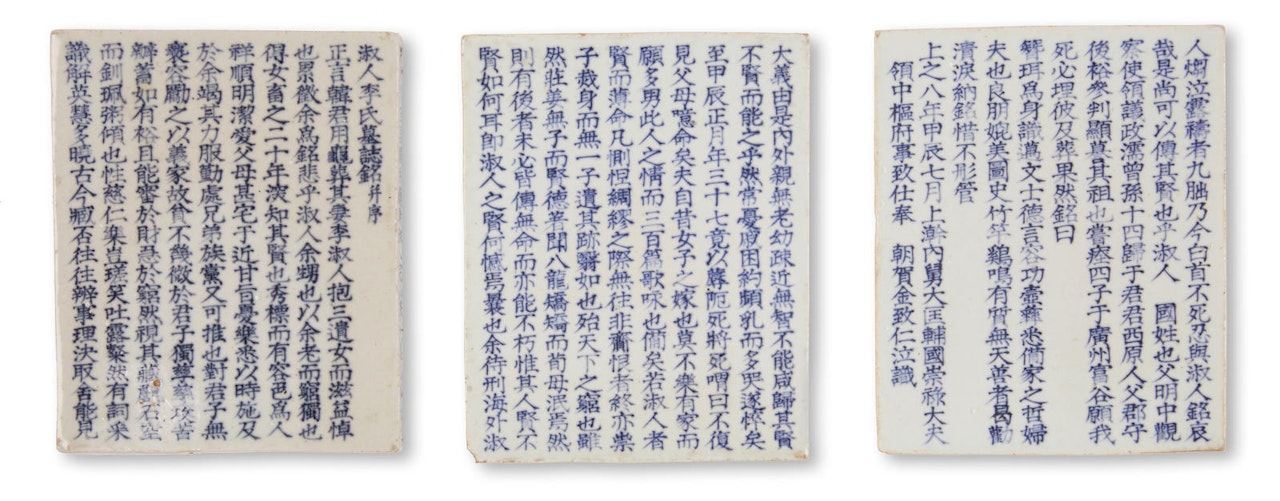 淑人李氏墓誌銘并序
正言韓君用龜葬其妻李淑人抱三遺女而滋益悼
也累徵余爲銘悲乎淑人余甥也以余老而窮獨也
得女畜之二十年深知其賢也秀標而有容邑爲人
祥順明潔愛父母甚宅于近甘旨憂樂悉以時施及
於余竭其力服勤處兄弟族黨又可推也對君子無
褻容勵之以義家故貧不幾微於君子獨 攻苦
辦蓄如有裕且能審於財恳於窮然視其藏 石空
而釧珮粥傾也性慈仁樂豈瑳笑吐露粲然有詞采
識解英慧多曉古今臧否往往辦事理決取舍能見
大義由是內外親無老幼疎近無智不能咸歸其賢
不賢而能之乎然常憂戚困約頻乳而多哭遂悴矣
至甲辰正月年三十七竟以蓐阨死將死喟曰不復
見父母噫命矣夫自昔女子之嫁也莫不樂有家而
願多男此人之情而三百篇歌咏也備矣若淑人者
賢而薄命凡惻怛綢繆之際無往非齎恨者終亦柴
子栽身而無一子遺其跡翳如也殆天下之窮也雖
然莊姜無子而賢德著聞八龍矯矯而荀母泯焉然
則有後者未必皆傳無命而亦能不朽惟其人賢不
賢如何耳卽淑人之賢何憾焉曩也余待刑海外淑
人爓泣露禱者九朏乃今白首不死忍與淑人銘哀
哉是尚可以傳其賢也乎淑人 國姓也父明中觀
察使領議政濡曾孫十四歸于君君西原人父郡守
後裕參判顯莫其祖也嘗瘞四子于廣州宮谷願我
死必埋彼及葬果然銘曰
笄珥爲身識邁文士德言容功壼彝悉備家之哲婦
夫也良朋娩美圖史竹竿鷄鳴有質無天善者曷勸
漬淚納銘惜不彤管
上之八年甲辰七月上澣內舅大匡輔國崇祿大夫
領中樞府事致仕奉 朝賀金致仁泣識